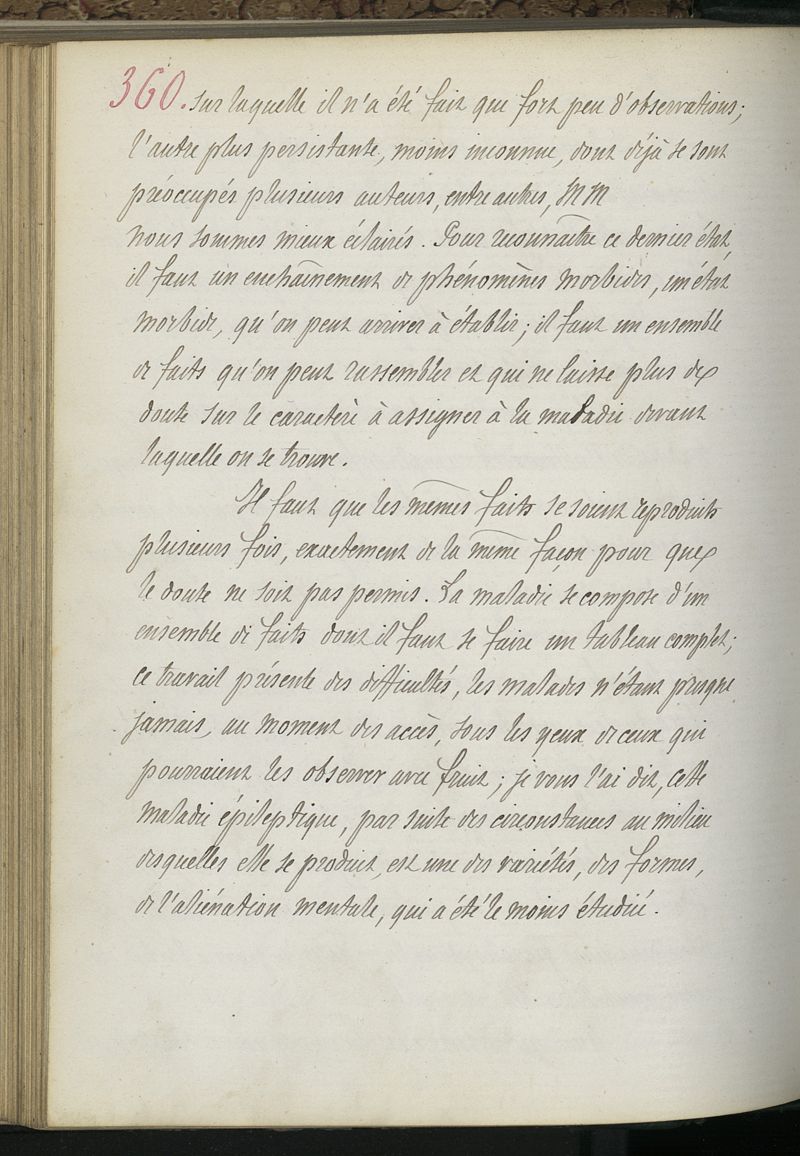 360. sur laquelle il n'a été fait que fort peu d'observations;
l'autre plus persistante, moins inconnue, dont déjà se sont
préoccupés plusieurs auteurs, entre autres, MM
nous sommes mieux éclairés. Pour reconnaître ce dernier état,
il faut un enchaînement de phénomènes morbides, un état
morbide, qu'on peut arriver à établir; il faut un ensemble
de faits qu'on peut rassembler et qui ne laisse plus de
doute sur le caractère à assigner à la maladie devant
laquelle on se trouve.
Il faut que les mêmes faits se soient reproduits
plusieurs fois, exactement de la même façon pour que
le doute ne soit pas permis. La maladie se compose d'un
ensemble de faits dont il faut se faire un tableau complet;
ce travail présente des difficultés, les malades n'étant presque
jamais, au moment des accès, sous les yeux de ceux qui
pourraient les observer avec fruit; je vous l'ai dit, cette
maladie épileptique, par suite des circonstances au milieu
desquelles elle se produit, est une des variétés, des formes,
de l'aliénation mentale, qui a été le moins étudié.